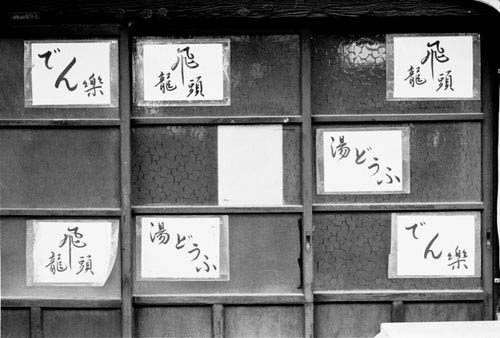 でん樂
飛龍頭
飛龍頭
湯どうふ
飛龍頭
湯どうふ
でん樂